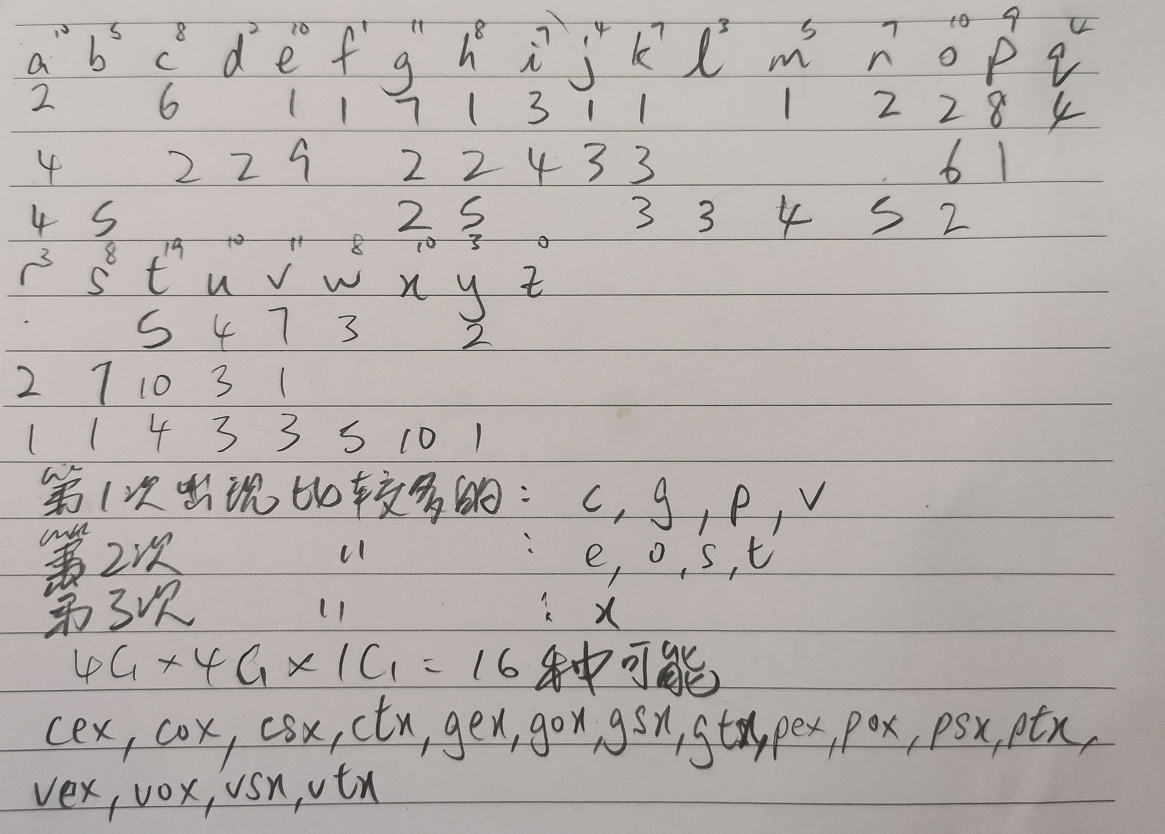 a¹⁰ b⁵ c⁸ d² e¹⁰ f¹ g¹¹ h⁸ i⁷ j⁴ k⁷ l³ m⁵ n⁷ o¹⁰ p⁹ q⁴
2 6 1 1 7 1 3 1 1 1 2 2 8 4
4 2 2 9 2 2 4 3 3 6 1
4 5 2 5 3 3 4 5 2
r³ s⁸ t¹⁹ u¹⁰ v¹¹ w⁸ x¹⁰ y³ z⁰
5 4 7 3 2
2 7 10 3 1
1 1 4 3 3 5 10 1
第1次出现比较多的: c, g, p, v
第2次 〃 : e, o, s, t
第3次 〃 : x
4C₁×4C₁×1C₁=16种可能
cex, cox, csx, ctx, gex, gox, gsx, gtx, pex, pox, psx, ptx,
vex, vox, vsx, vtx